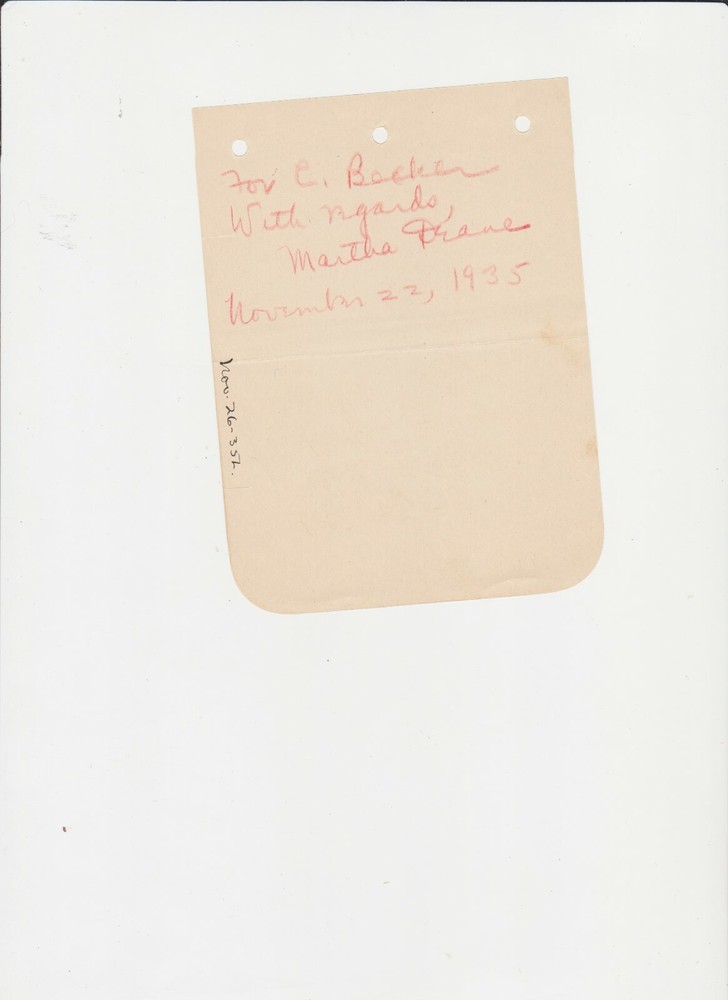 For C. Becker
With regards,
Martha Deane
November 22, 1935
Nov. 26-35L.